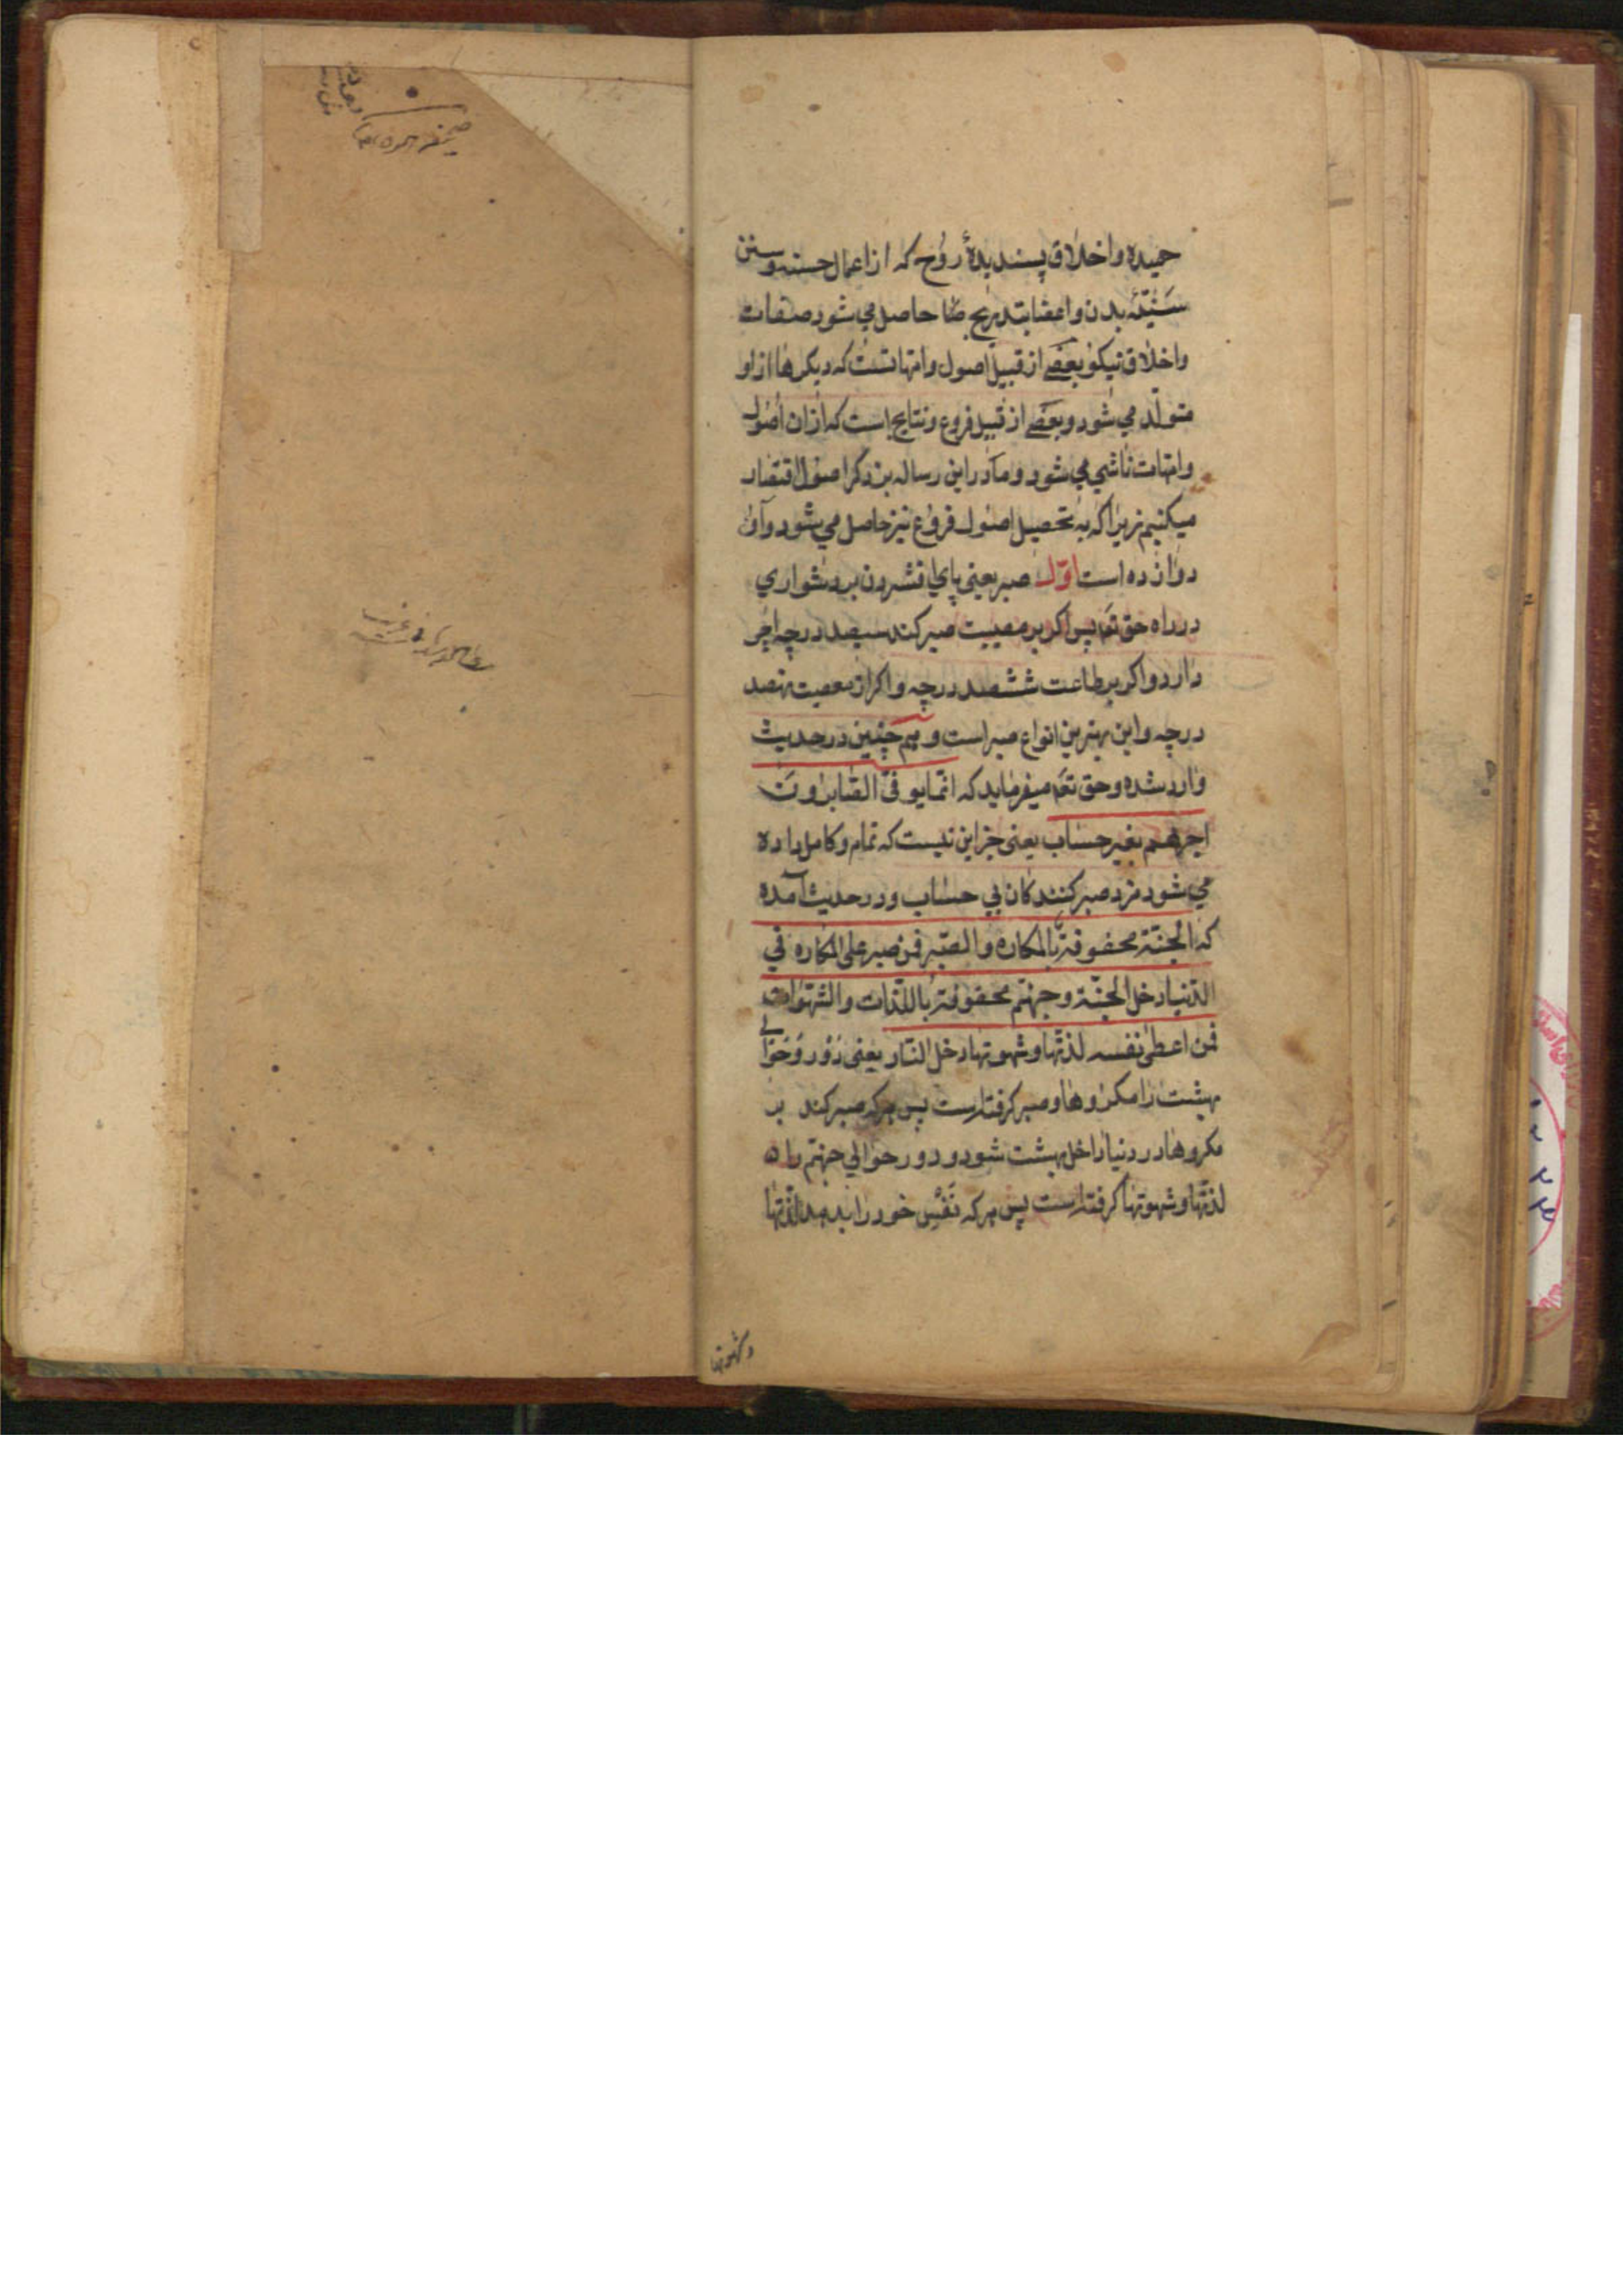 حمیده واخلاق پسندیدهٔ روح که ازاعمال حسنه وسنن
سنیّهٔ بدن واعضا بتدریج حاصل می شود صفات
واخلاق نیکو بعضی از قبیل اصول وامّهاتست که دیکرها ازاو
متولّد می شود وبعضی از قبیل فروع ونتایج است که ازان اصول
وامّهات ناشی می شود وما دراین رساله بذکر اصول اقتصار
میکنیم زیراکه به تحصیل اصول فروع نیز حاصل می شود وآن
دوازده است اوّل صبر یعنی پای افشردن بر دشواری
درراه حق تع پس اکر بر مصیبت صبر کند سیصد درجه اجر
دارد واکر بر طاعت ششصد درجه واکر از معصیت نهصد
درجه واین بهترین انواع صبر است وهم چنین در حدیث
وارد شده وحق تع میفرماید که انّما یوفّی الصّابرون
اجرهم بغیر حساب یعنی جز این نیست که تمام وکامل داده
می شود مزد صبر کنندکان بی حساب ودر حدیث آمده
که الجنّة محفوفة بالمکاره والصّبر فمن صبر علی المکاره فی
الدّنیا دخل الجنّة وجهنّم محفوفة باللّذات والشّهوات
فمن اعطی نفسه لذتها وشهوتها دخل النّار یعنی دَوْر وحَوالی
بهشت را مکروها وصبر کرفته است پس هر که صبر کند بر
مکروها در دنیا داخل بهشت شود ودور حوالی جهنّم را
لذتّها وشهوتها کرفته است پس هر که نفس خود را بدهد لذّتها
وشهوتها